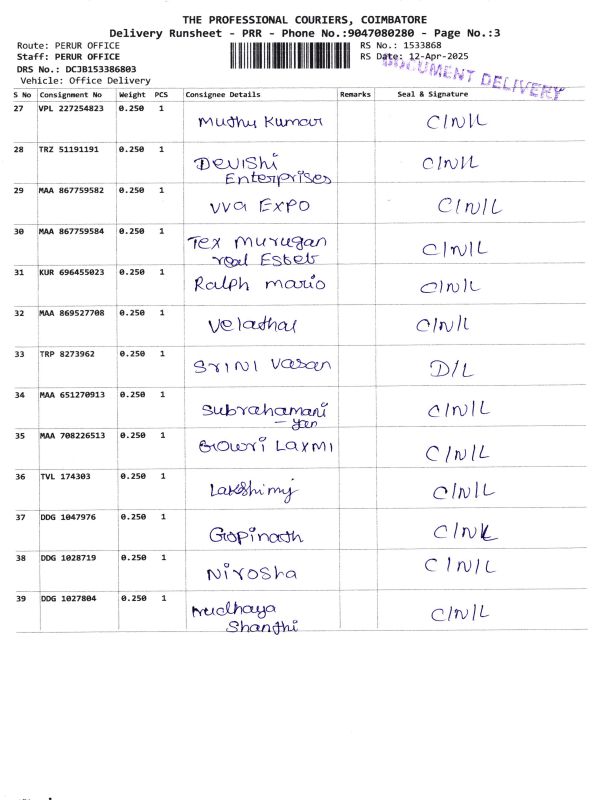 THE PROFESSIONAL COURIERS, COIMBATORE
Delivery Runsheet - PRR - Phone No.:9047080280 - Page No.:3
Route: PERUR OFFICE
RS No.: 1533868
Staff: PERUR OFFICE
RS Date: 12-Apr-2025
DOCUMENT DELIVERY
DRS No.: DCJB153386803
Vehicle: Office Delivery
S No Consignment No Weight PCS Consignee Details Remarks Seal & Signature
27 VPL 227254823 0.250 1 Muthu Kumar C/N/L
28 TRZ 51191191 0.250 1 Devishi C/N/L
Enterprises
29 MAA 867759582 0.250 1 VVa EXPO C/N/L
30 MAA 867759584 0.250 1 Tex Murugan C/N/L
real Esteb
31 KUR 696455023 0.250 1 Ralph mario C/N/L
32 MAA 869527708 0.250 1 Velathal C/N/L
33 TRP 8273962 0.250 1 Srini Vasan D/L
34 MAA 651270913 0.250 1 Subrahamani C/N/L
- yan
35 MAA 708226513 0.250 1 Gowri Laxmi C/N/L
36 TVL 174303 0.250 1 Lakshimi C/N/L
37 DDG 1047976 0.250 1 Gopinath C/N/L
38 DDG 1028719 0.250 1 Nirosha C/N/L
39 DDG 1027804 0.250 1 C/N/L
Shanthi